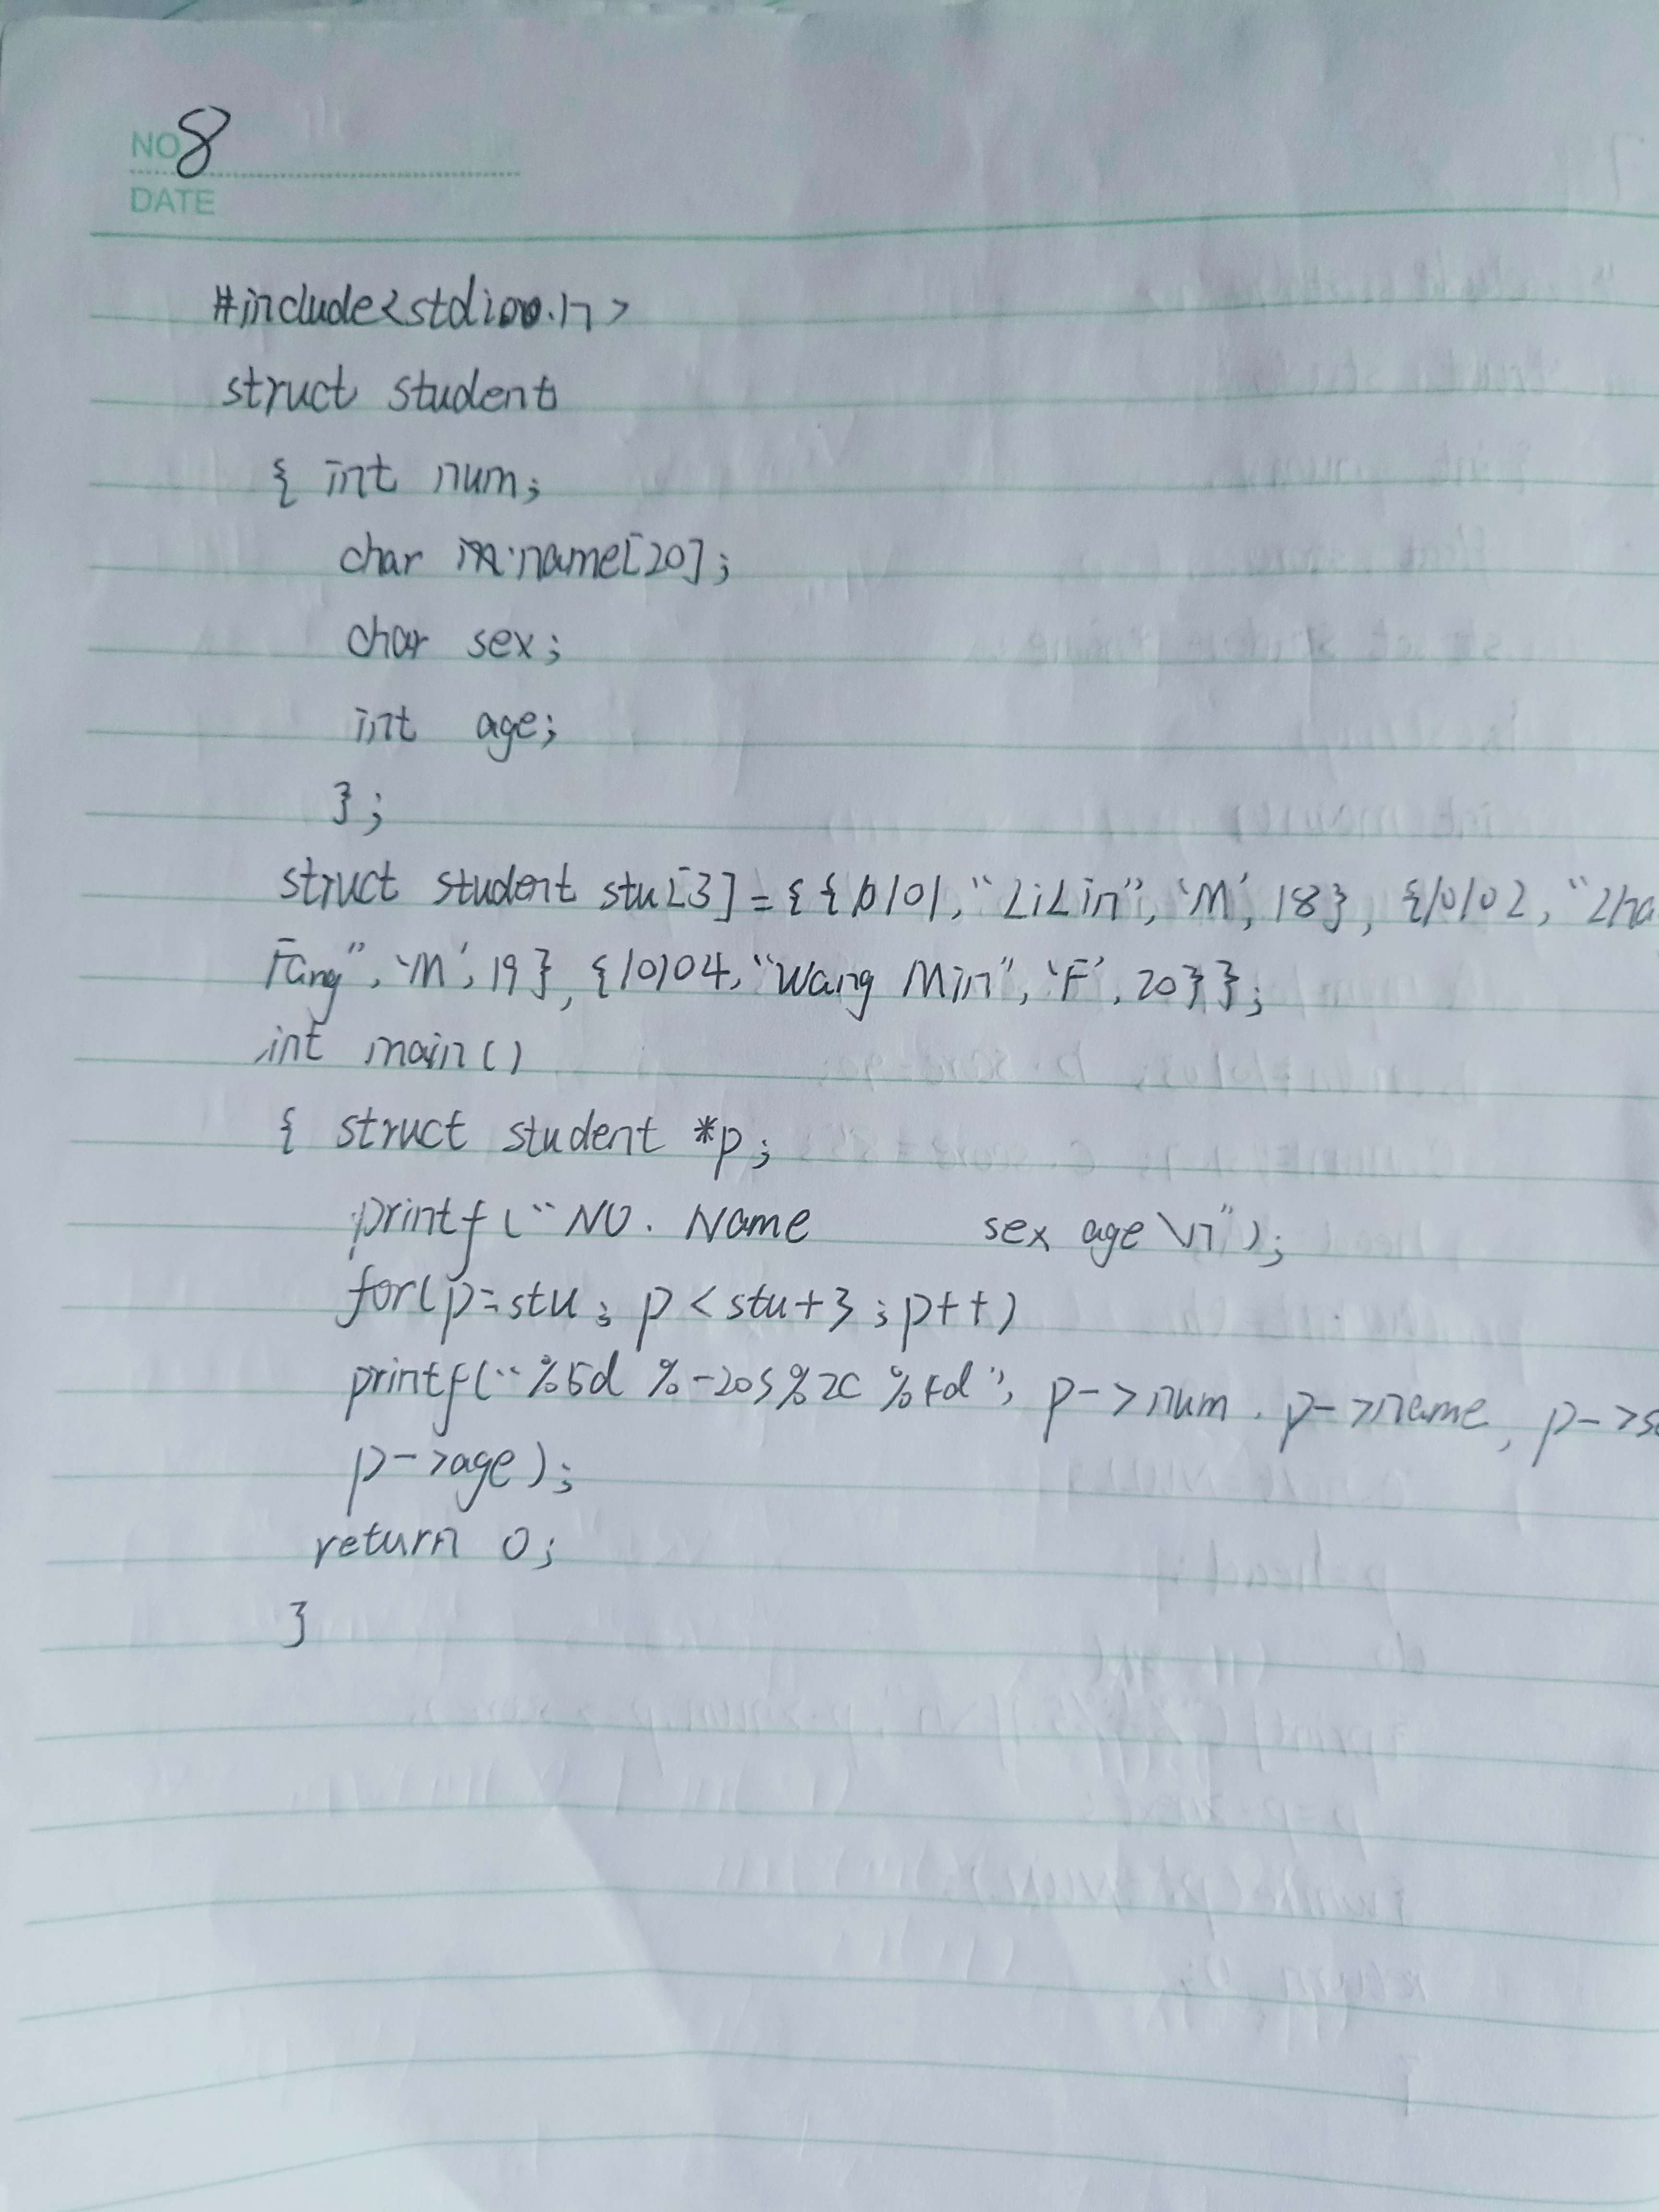 NO 8
DATE
#include<stdio.h>
struct student
{ int num;
char name[20];
char sex;
int age;
};
struct student stu[3]={{10101,"LiLin",'M',18},{10102,"Zha
Fang",'M',19},{10104,"Wang Min",'F',20}};
int main()
{ struct student *p;
printf("NO. Name sex age\n");
for(p=stu; p<stu+3;p++)
printf("%5d %-20s%2c %4d", p->num, p->name, p->s
p->age);
return 0;
}